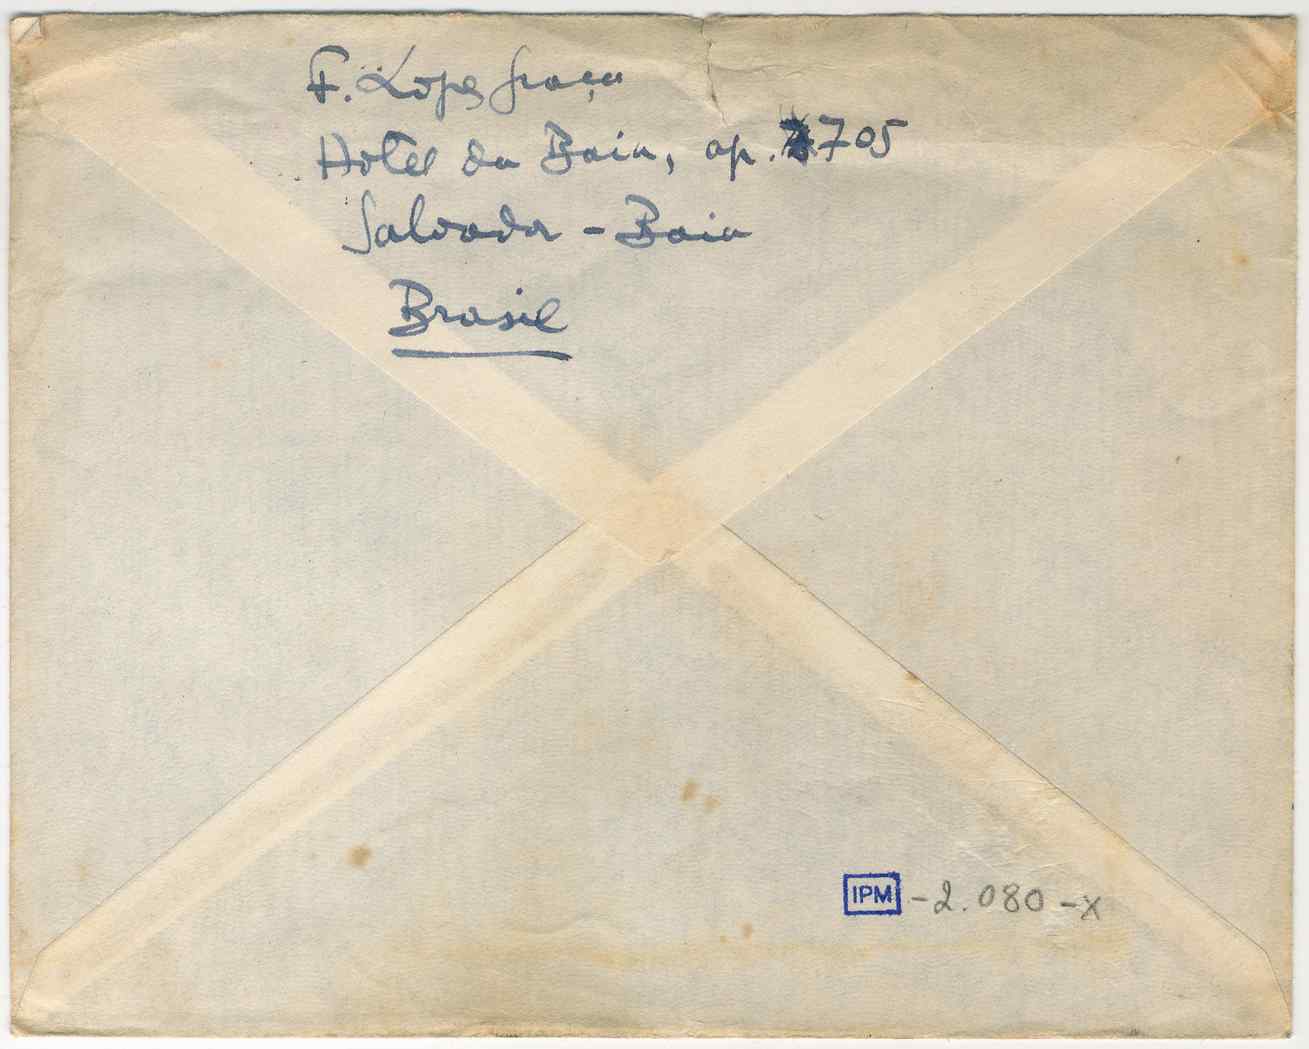 F. Lopes Graça
Hotel da Baía, ap. 705
Salvador - Baía
Brasil
IPM -2.080-X